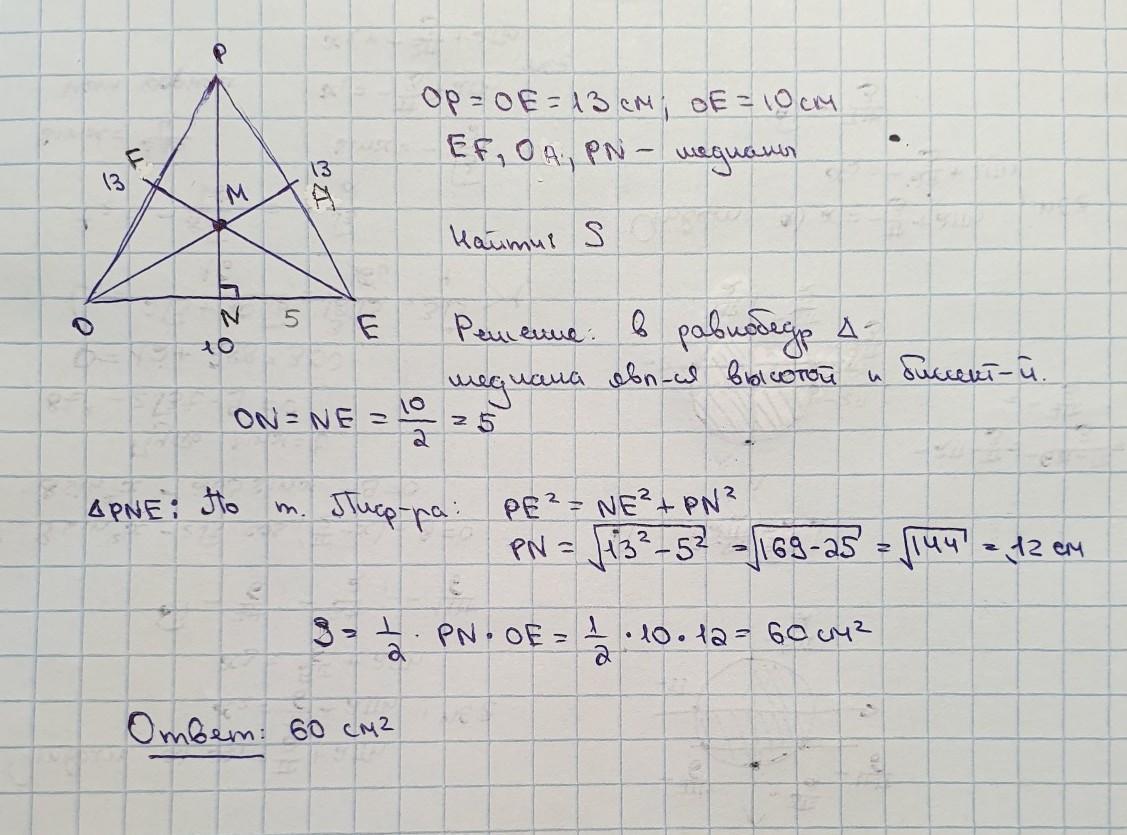 P
OP = OE = 13 см; OE = 10 см
EF, OA, PN – медианы
F
13
13
A
M
Найти: S
O
N
5
E
10
Решение: в равнобедр Δ-
медиана явл-ся высотой и биссект-й.
ON = NE = 10/2 = 5
ΔPNE: По т. Пиф-ра: PE² = NE² + PN²
PN = √13² – 5² = √169-25 = √144 = 12 см
S = 1/2 · PN · OE = 1/2 · 10 · 12 = 60 см²
Ответ: 60 см²